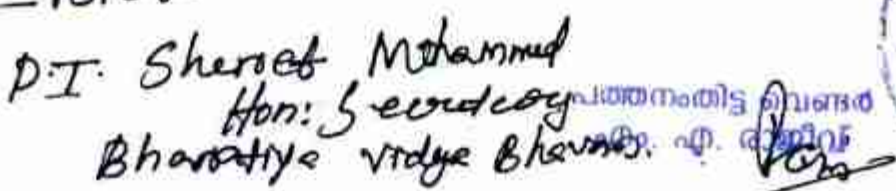 P.I. Shereef Mohammed
Hon: Secretary പത്തനംതിട്ട വെണ്ടർ
Bharatiya Vidya Bhavan. എ. രാജീവ്